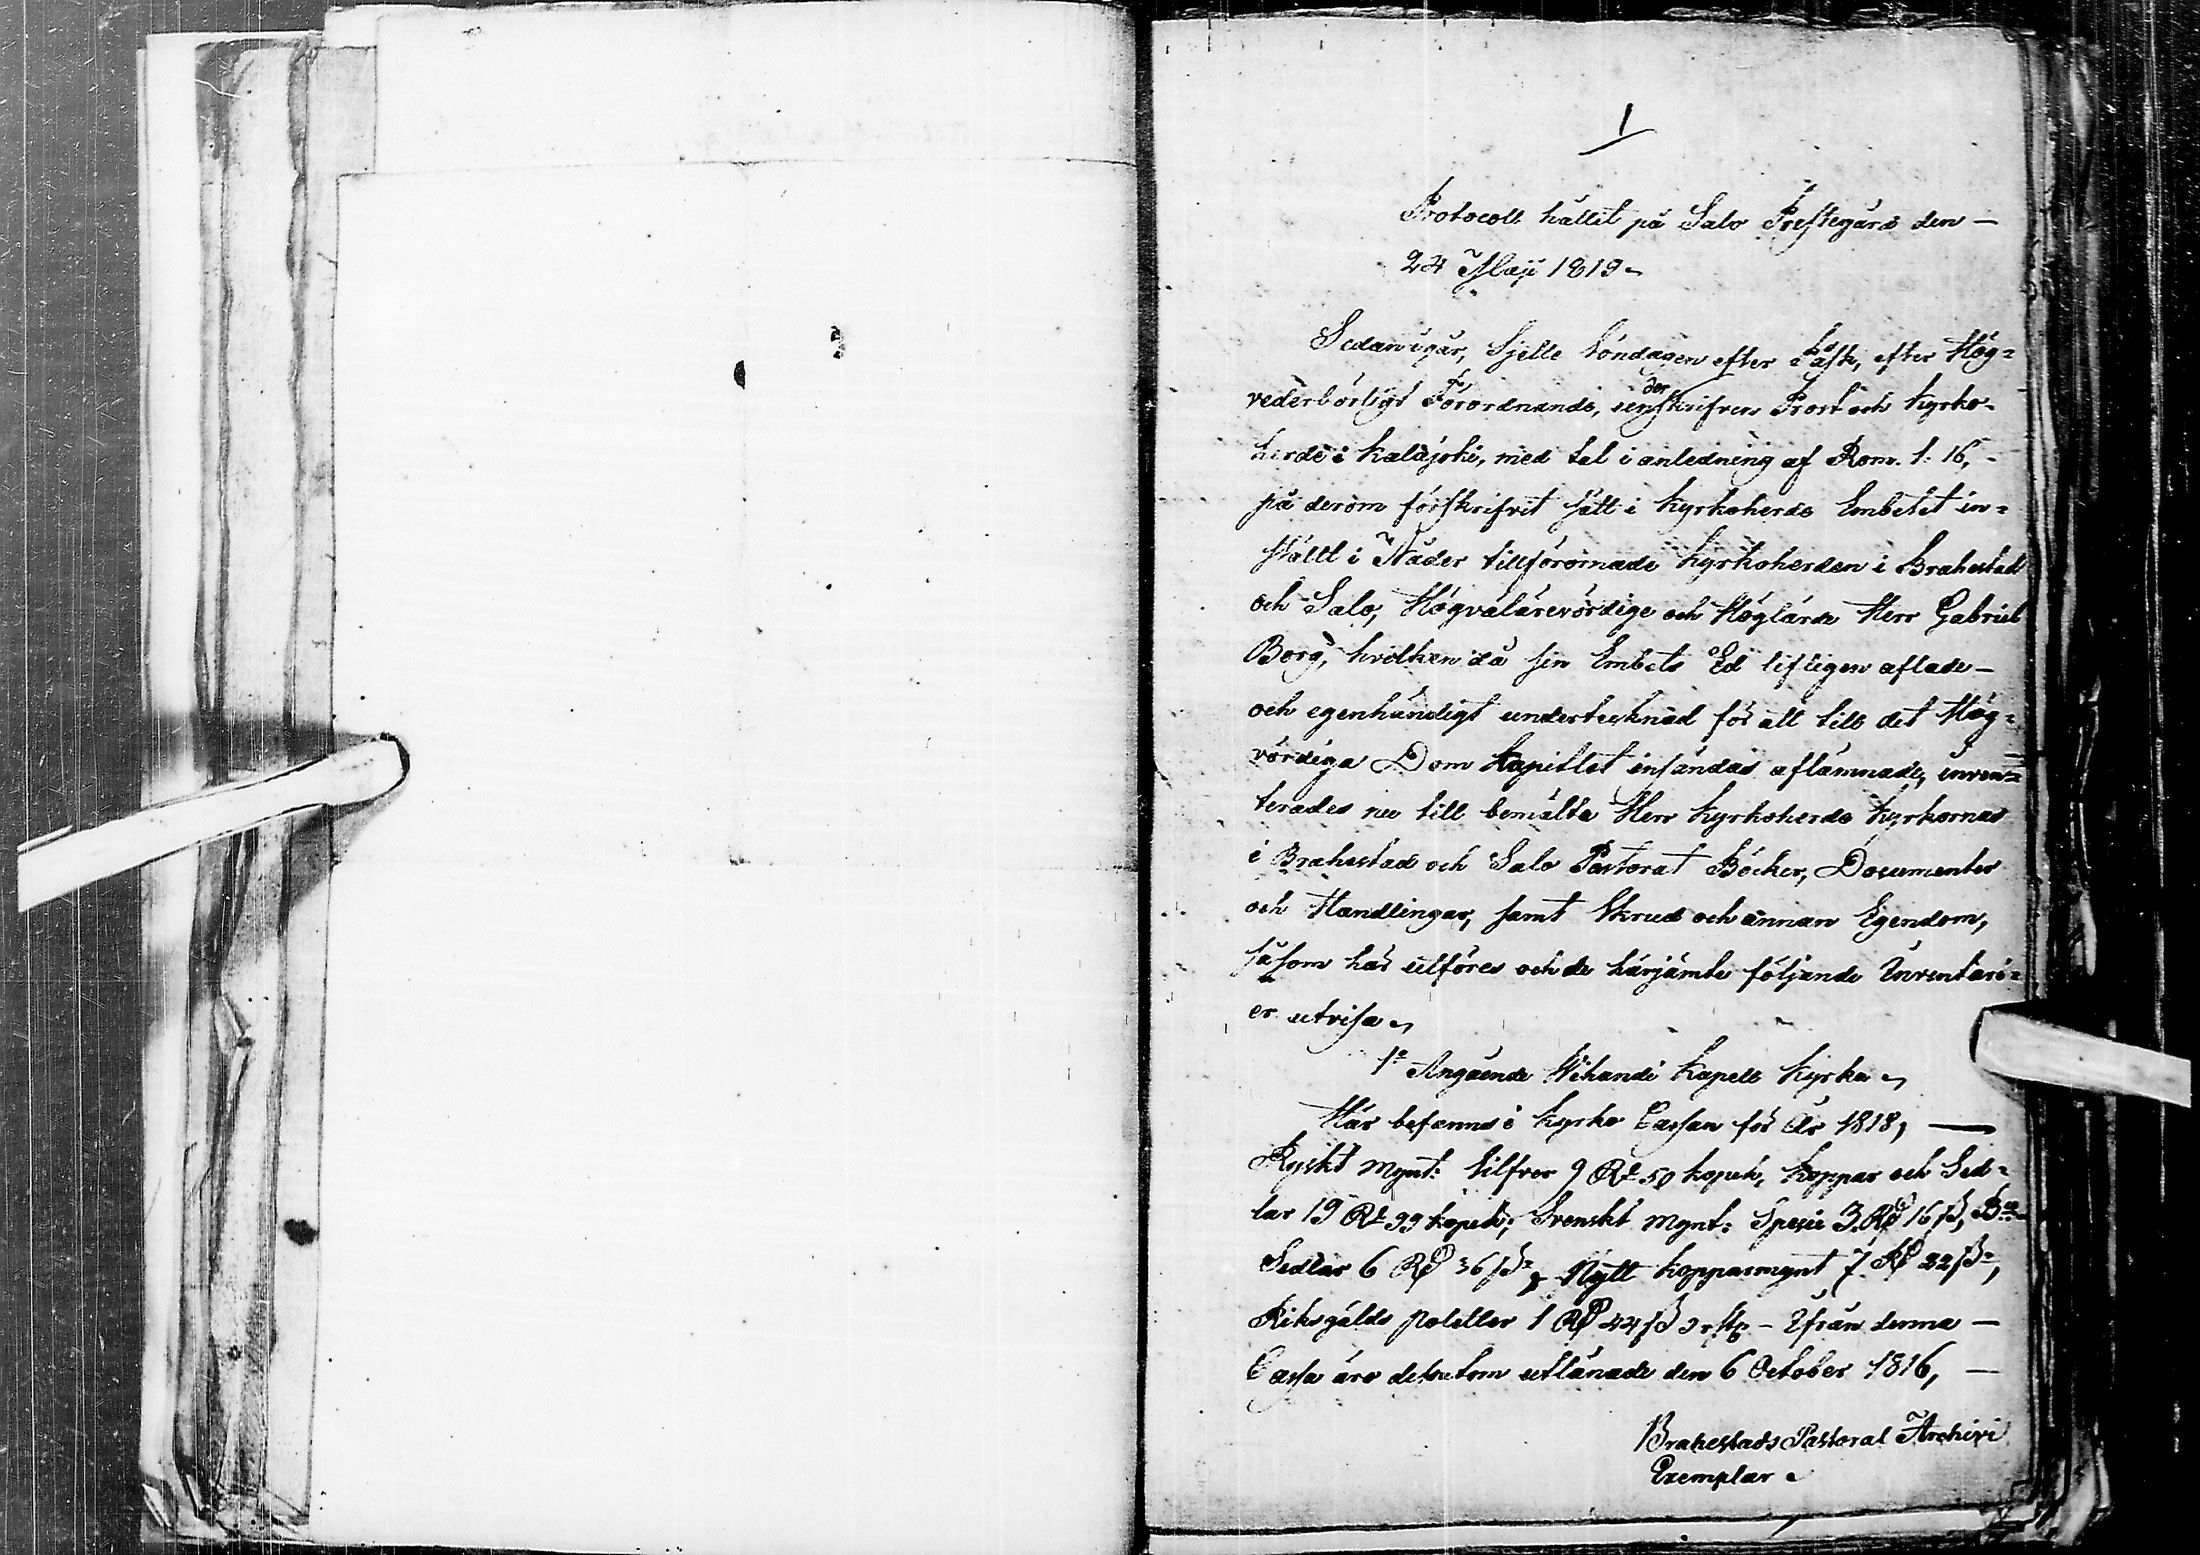 1
Protocoll hållit på Salo Prestegård den —
24 Maji 1819.
Sedan igår, 5jette Söndagen efter Påsk, efter Hög=
vederbörligt Förordnande, underskrifven Prost och Kyrko-
herde i Kalajoki, med tal i anledning af Rom. 1: 16,
på derom förskrifvit sätt i Kyrkoherde Embetet in=
stält i Nåder tillförornade Kyrkoherden i Brahestad
och Salo, Högvälärevördige och Höglärde Herr Gabriel
Borg, hvilken då sin Embets Ed lifligen aflade —
och egenhändigt undertecknad för att till det Hög=
vördiga Dom Kapitlet insändas aflämnade, inven=
terades nu till bemälte Herr Kyrkoherde Kyrkornas
i Brahestad och Salo Pastorat Böcker, Documenter
och Handlingar, samt Skrud och annan Egendom,
såsom här utföres och de härjämte följande Inventari=
er utvisa.
1:o Angående Wihandi Kapell Kyrka.
Här befanns i Kyrko Cassan för År 1818, —
Ryskt mynt: silfver 9 Rf 50 kopek, Koppar och Sed=
lar 19 Rf 99 kopek; Svenskt mynt: Specie 3. Rd 16 ß, B:co
Sedlar 6 Rd 36 ß, Nytt kopparmynt 7. Rd 22 ß,
Riksgälds poletter 1 Rd 44 ß — Ifrån denna —
Cassa äro dessutom utlånade den 6 October 1816, —
Brahestads Pastorat Archivi
Exemplar.